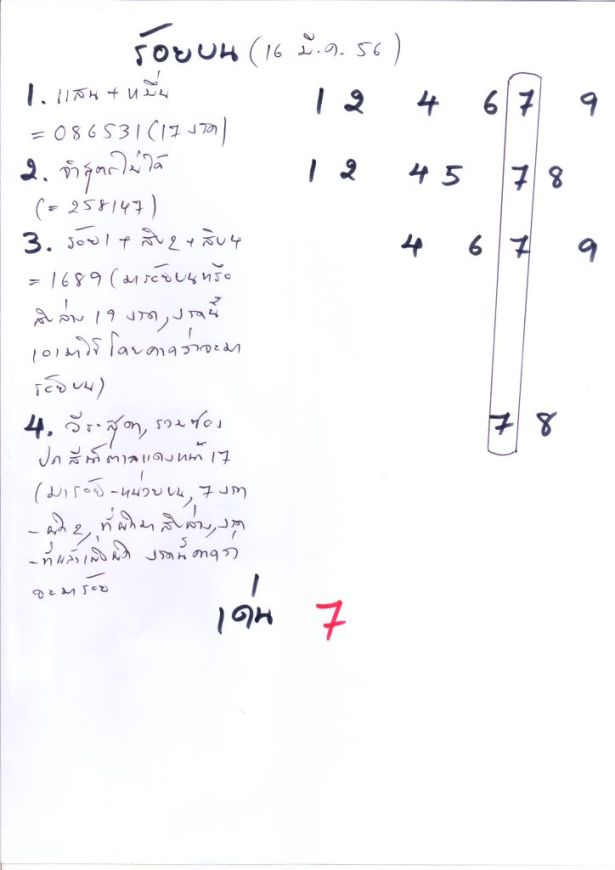 ร้อยบน (16 มี.ค. 56)
1. แสน + หมื่น 1 2 4 6 7 9
= 086531 (17 งวด)
2. จำสูตรไม่ได้ 1 2 4 5 7 8
(= 258147)
3. ร้อย 1 + สิบ 2 + สิบ 4 4 6 7 9
= 1689 (มาร้อยบนหรือ
สิบล่าง 19 งวด, งวดนี้
เอามาใช้ โดยคาดว่าจะมา
ร้อยบน)
4. วีระสุดา, รวมซอง 7 8
ปกสีน้ำตาลแดงหน้า 17
(มาร้อย-หน่วยบน, 7 งวด
-ผิด 2, ที่ผิดมาสิบล่าง, งวด
-ที่แล้วเพิ่งผิด งวดนี้คาดว่า
จะมาร้อย
เด่น 7